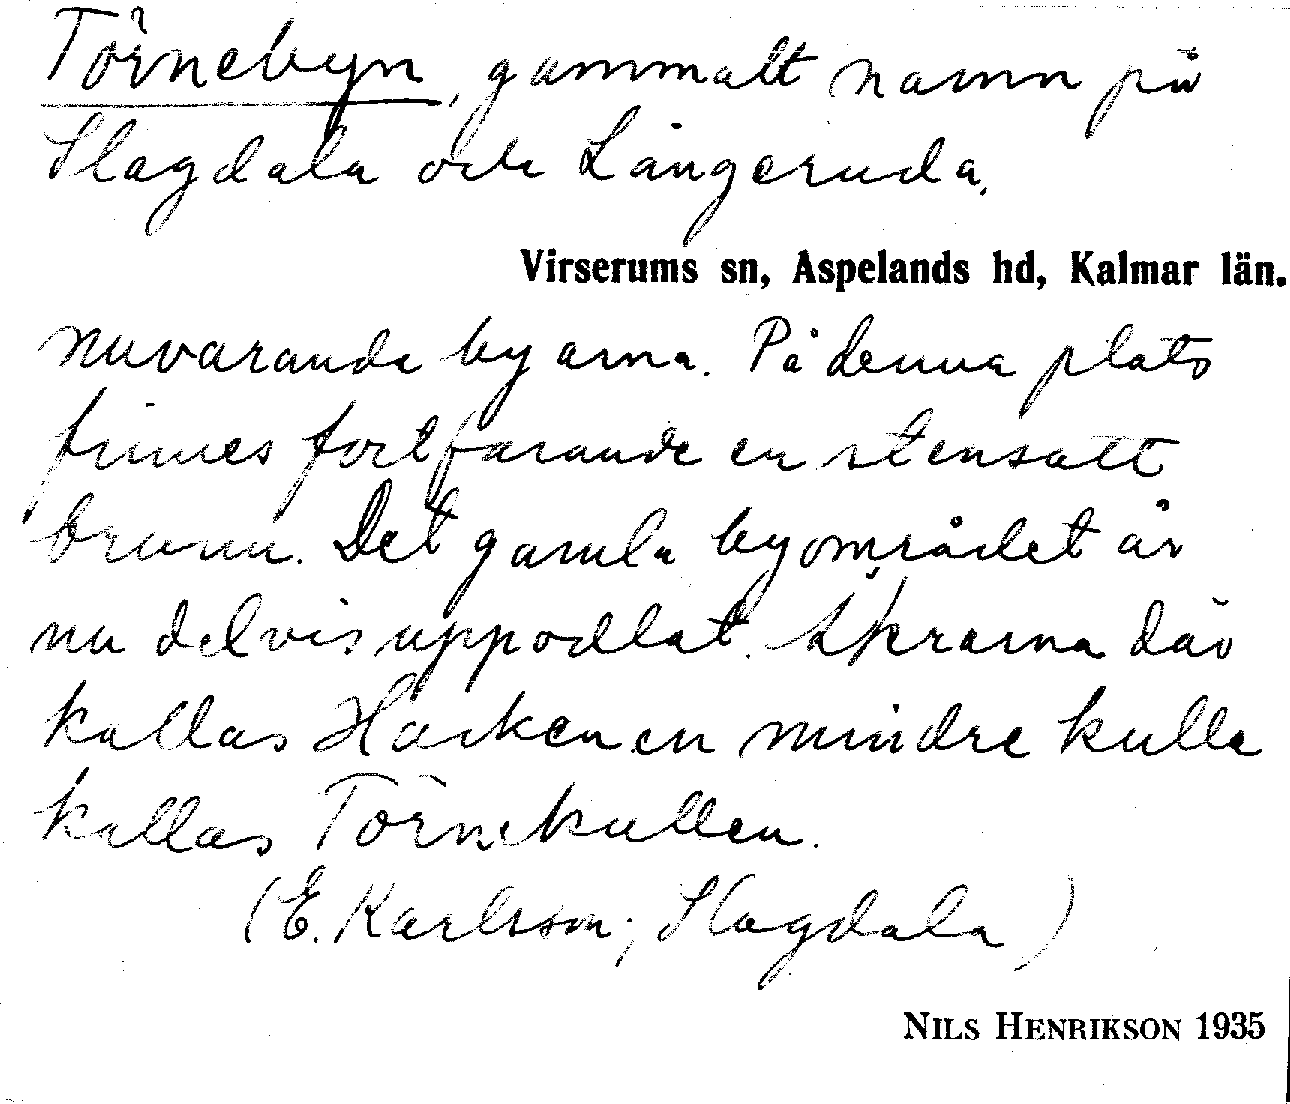 Törnebyn, gammalt namn på
Slagdala och Långeruda,
Virserums sn, Aspelands hd, Kalmar län.
nuvarande byarna. På denna plats
finnes fortfarande en stensatt
brunn. Det gamla byområdet är
nu delvis uppodlat. Åkrarna där
kallas Harken en mindre kulle
kallas Törnekullen.
(E. Karlsson, Slagdala)
NILS HENRIKSON 1935